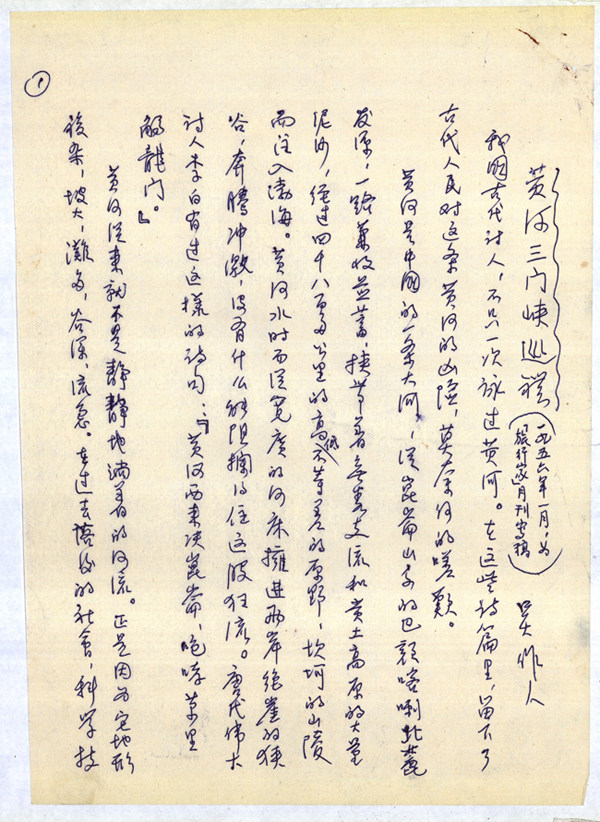 1
黄河三门峡巡礼
(一九五六年一月,为
旅行家月刊写稿)
吴作人
我国古代诗人,不只一次咏过黄河。在这些诗篇里,留下了
古代人民对这条黄河的凶险,莫奈何的嗟叹。
黄河是中国的一条大河,从崑崙山系的巴颜喀喇北麓
发源,一路兼收並蓄,挟带着无数支流和黄土高原的大量
泥沙,经过四千八百多公里的高低不等差的原野,坎坷的山陵
而注入渤海。黄河水时而从宽广的河床擁进两岸绝崖的狭
谷,奔腾冲激,没有什么能阻擱得住这股狂流。唐代伟大
诗人李白有过这樣的诗句:『黄河西来决崑崙,咆哮萬里
觸龍门。』
黄河从来就不是静静地淌着的河流。正是因为它地形
複杂,坡大,灘多,谷深,流急。在过去落後的社會,科学技